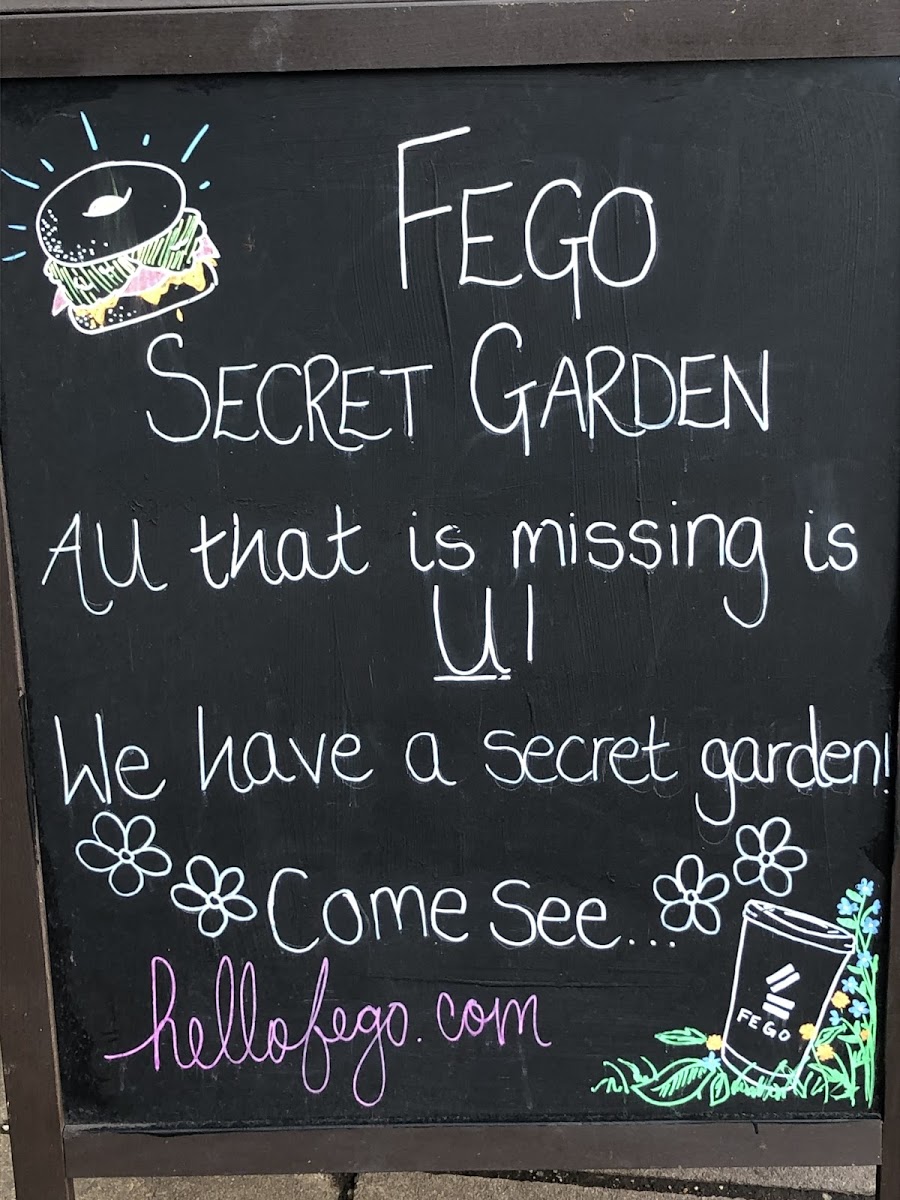 FEGO
SECRET GARDEN
All that is missing is
U!
We have a secret garden!
Come see...
hellofego.com
FEGO